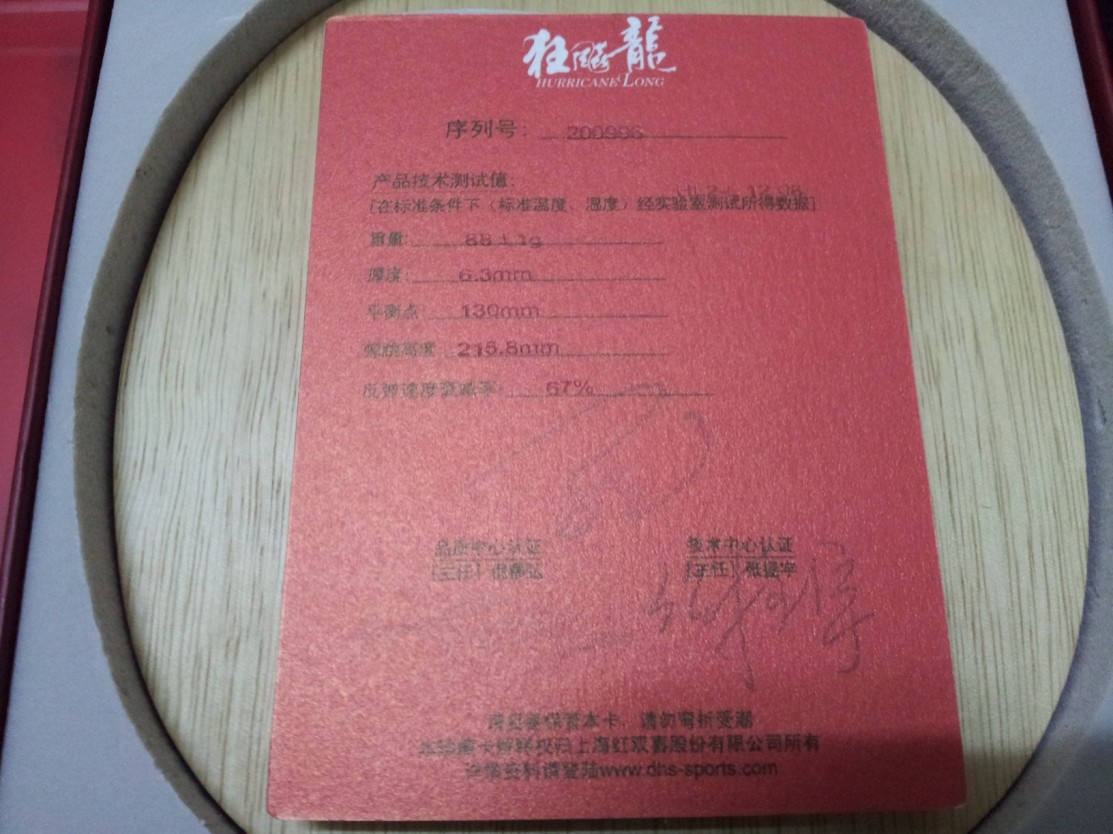 狂飚龍
HURRICANE LONG
序列号： 200996
产品技术测试值：
[在标准条件下（标准温度、湿度）经实验室测试所得数据]
重量： 88±1g
厚度： 6.3mm
平衡点： 130mm
高度 215.8mm
反弹速度衰减率： 67%
品质中心认证 技术中心认证
[主任] [主任] 张提宇
保管本卡，请勿弯折受潮
上海红双喜股份有限公司所有
资料请登陆www.dhs-sports.com